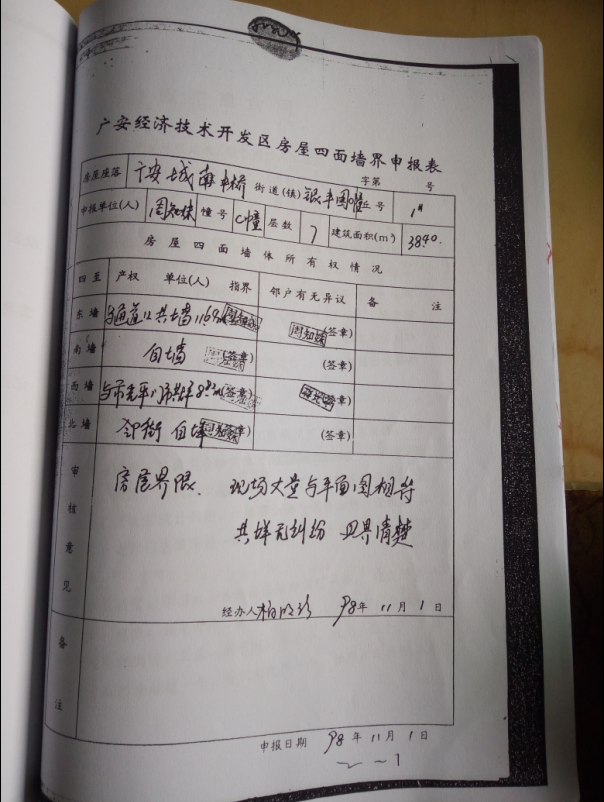 广安经济技术开发区房屋四面墙界申报表
字第 号
房屋座落 广安城南中桥 街道(镇) 银丰园 幢 丘号 1#
申报单位(人) 周知 幢号 C幢 层数 7 建筑面积(m²) 38.40
房屋四面墙体所有权情况
四至 产权 单位(人) 指界 邻户有无异议 备 注
东墙 与通道 共墙 11.69m 周知 周知 (签章)
南墙 自墙 (签章) (签章)
西墙 与市 平 门市共 8.83m (签章) (签章)
北墙 邻街 自墙 (签章)
审核意见
房屋界限. 现场丈量与平面图相符
共墙无纠纷 四界清楚
经办人 柏 98年11月1日
备注
申报日期 98年11月1日
2-1